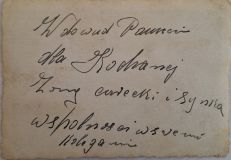 W dowód Pamięci
dla Kochanej
Żony córecki i Synka
wspólnie z
Kolegami